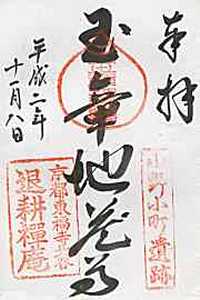 奉拝
小野小町遺跡
玉章地蔵尊
平成二年
十一月八日
京都東福寺
退耕禪庵